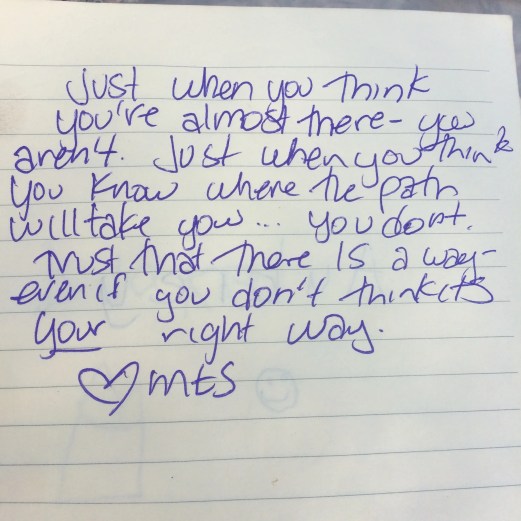 Just when you think
you're almost there - you
aren't. Just when you think
you know where the path
will take you... you dont.
Trust that there is a way -
even if you don't think its
your right way.
♡ mts